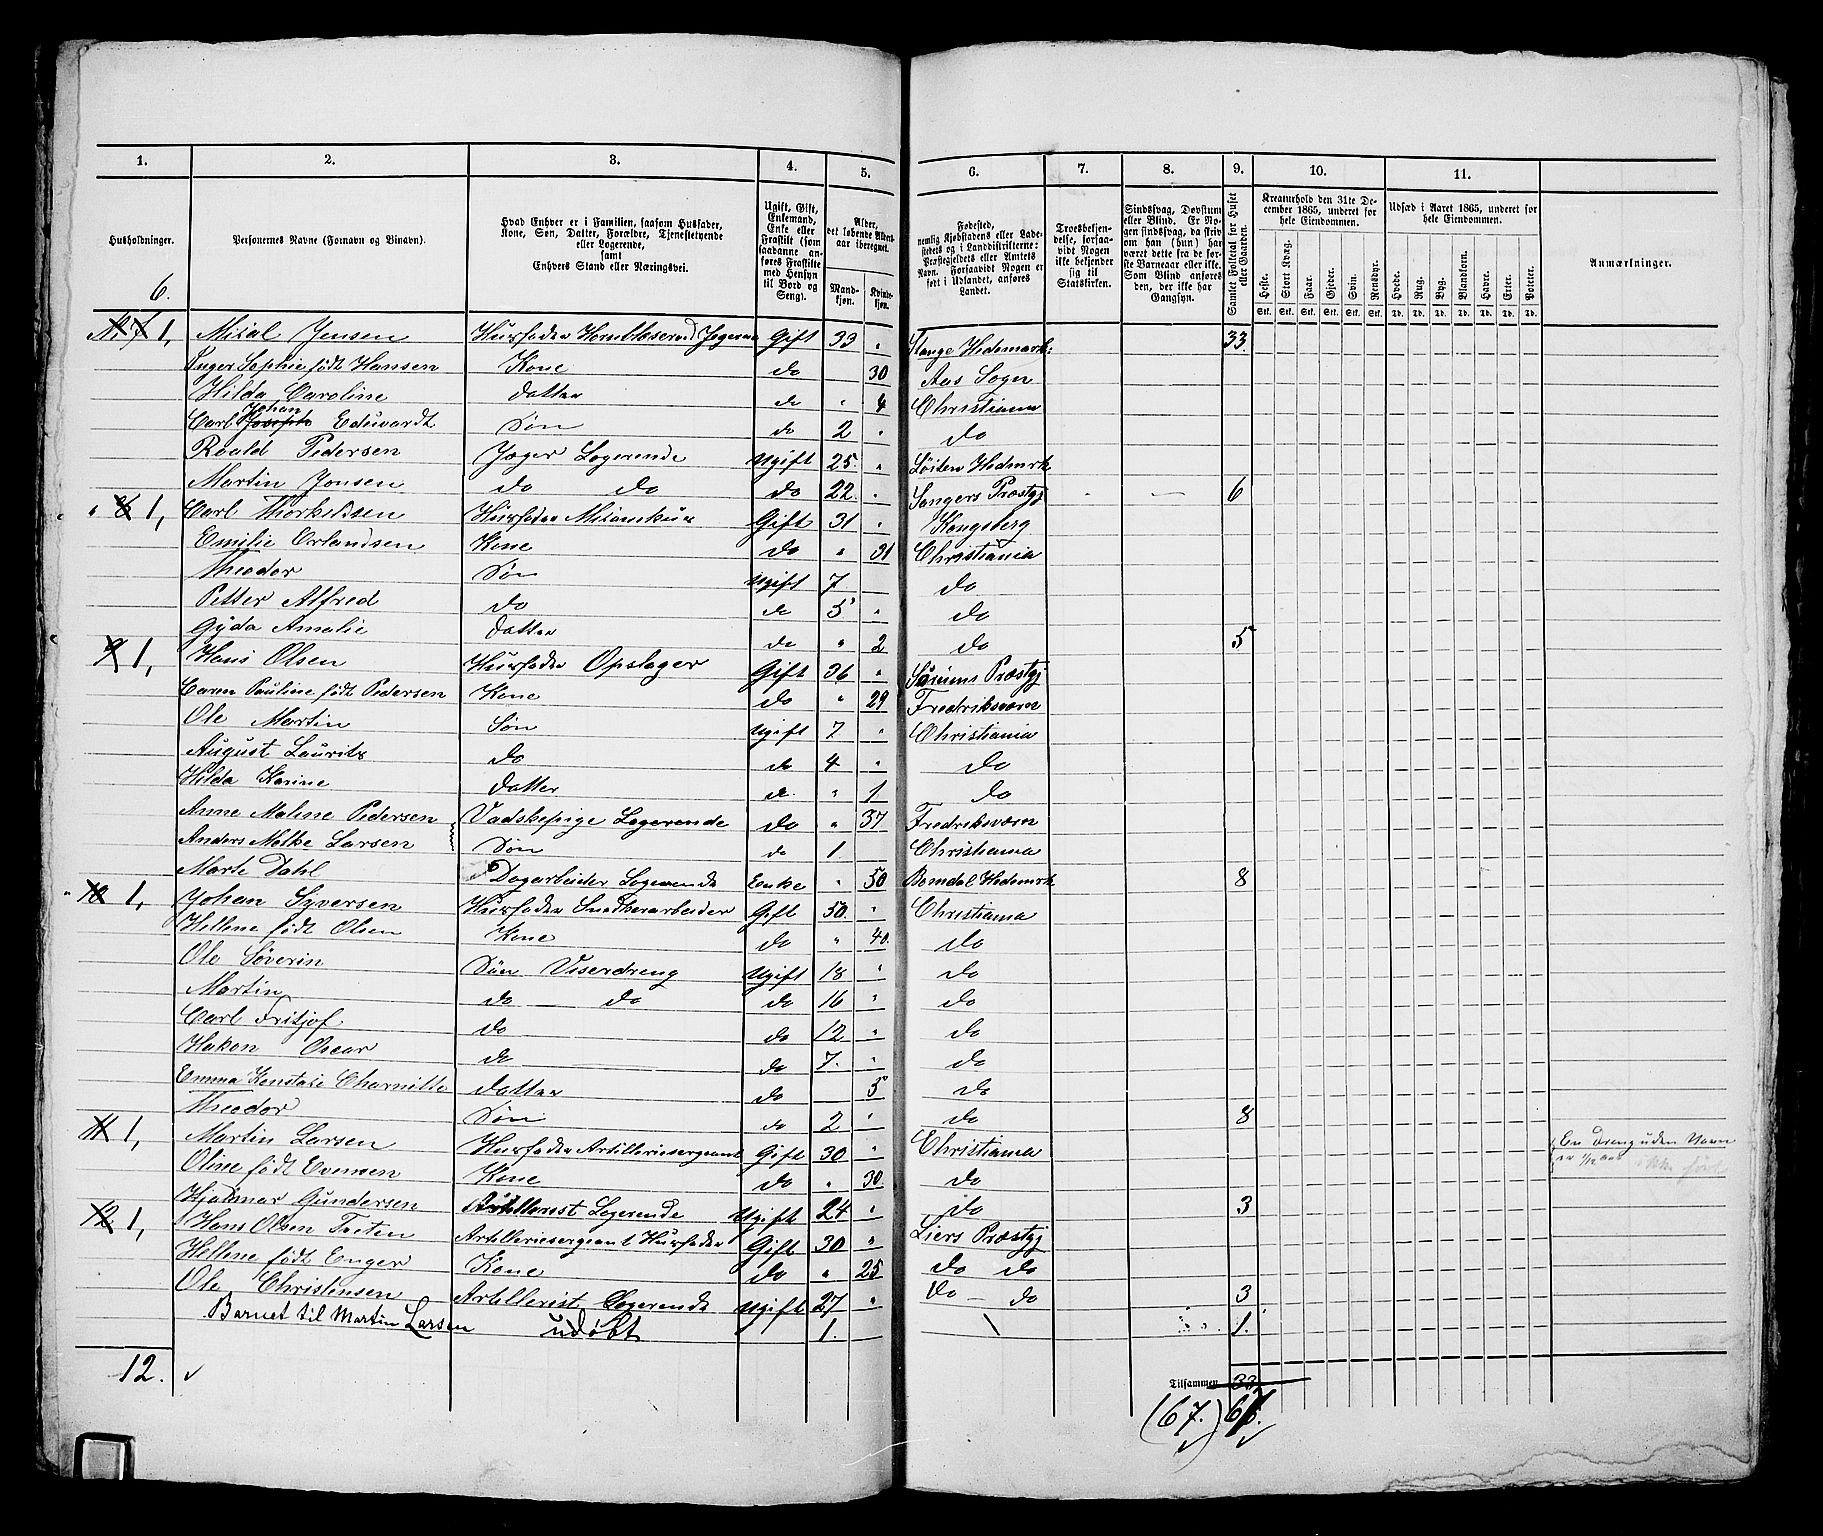 1. 2. 3. 4. 5. 6. 7. 8. 9. 10. 11.
Husholdninger.
Personernes Navne (Fornavn og Binavn).
Hvad Enhver er i Familien, saasom Husfader, Kone, Søn, Datter, Forældre, Tjenestetyende eller Logerende, samt Enhvers Stand eller Næringsvei.
Ugift, Gift, Enkemand, Enke eller Fraskilt (som saadanne anføres Fraskilte med Hensyn til Bord og Seng).
Alder, det løbende Alders-aar iberegnet.
Mandkjøn. Kvindekjøn.
Fødested, nemlig Kjøbstadens eller Ladestedets og i Landdistrikterne: Præstegjeldets eller Amtets Navn. Forsaavidt Nogen er født i Udlandet, anføres Landet.
Troesbekjendelse, forsaavidt Nogen ikke bekjender sig til Statskirken.
Sindssvag, Døvstum eller Blind. Er Nogen sindssvag, da skriv om han (hun) har været dette fra de første Barneaar eller ikke. Som Blind anføres den, der ikke har Gangsyn.
Samlet Folketal for Huset eller Gaarden.
Kreaturhold den 31te December 1865, underet for hele Eiendommen.
Heste. Stort Kvæg. Faar. Gjeder. Svin. Rensdyr.
Stk. Stk. Stk. Stk. Stk. Stk.
Udsæd i Aaret 1865, underet for hele Eiendommen.
Hvede. Rug. Byg. Blandkorn. Havre. Erter. Poteter.
Td. Td. Td. Td. Td. Td. Td.
Anmærkninger.
6.
1, Misal Jensen Husfader Hornblæser ved Jegerne Gift 33 " Stange Hedemark: 33.
Inger Sophie født Hansen Kone do 30 Aas Sogn
Hilda Caroline datter do " 4 Christiania
Carl Joseph Johan Eduardt Søn do 2 " do
Roald Pedersen Jæger Logerende Ugift 25. " Løiten Hedmrk
Martin Jonsen do do do 22. " Præstgj 6
" 8 1, Carl Thorkildsen Husfader Gift 31 " Kongsberg
Emilie Orlandsen Kone do " 31 Christiania
Theodor Søn Ugift 7 do
Petter Alfred do do 5 " do
Gyda Amalie datter do " 2 do 5
9 1, Hans Olsen Husfader Opslager Gift 36 " Præstgj
Caren Pauline født Pedersen Kone do " 29 Fredriksværn
Ole Martin Søn Ugift 7 " Christiania
August Laurits do do 4 " do
Hilda Karine datter do. " 1 do
Anne Maline Pedersen Vadskepige Logerende do " 37 Fredriksværn
Anders Larsen Søn do 1. Christiania
Marte Dahl Dagarbeider Logerende Enke " 50 Hedemrk 8
" 10 1, Johan Syversen Husfader Snedkerarbeider Gift 50. " Christiania
Hellene født Olsen Kone do " 40. do
Ole Søverin Søn Viserdreng Ugift 18 " do
Martin do do do 16 " do
Carl Fritjof do do 12 " do
Hakon Oscar do do 7. " do
Emma datter do 5 do
Theodor Søn do 2 " do 8
11 1, Martin Larsen Husfader Artilleriesergeant Gift 30 " Christiania En Dreng uden Navn
Oline født Evensen Kone do " 30. do
Hjalmar Gundersen Artillerist Logerende Ugift 24 " do 3
12 1, Hans Olsen Artilleriesergeant Husfader Gift 30 " Liers Præstgj
Hellene født Enger Kone do " 25 do do
Ole Christensen Artillerist Logerende Ugift 27 " do do 3
Barnet til Martin Larsen udøbt 1. 1.
12. ✓
Tilsammen 33
(67.) 67.